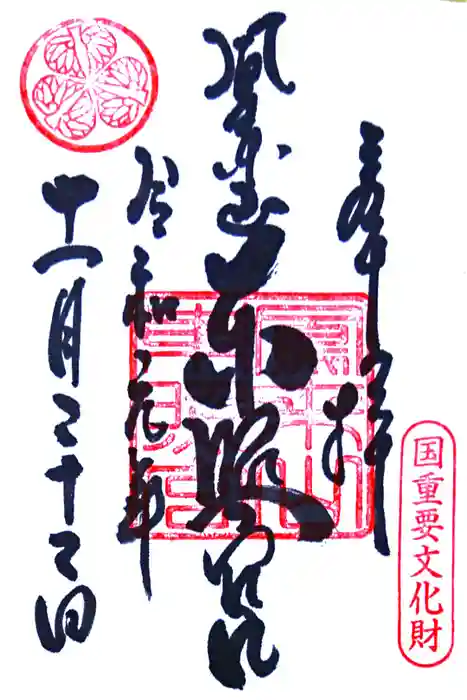 奉拝
国重要文化財
鳳来山東照宮
令和元年
十一月二十二日